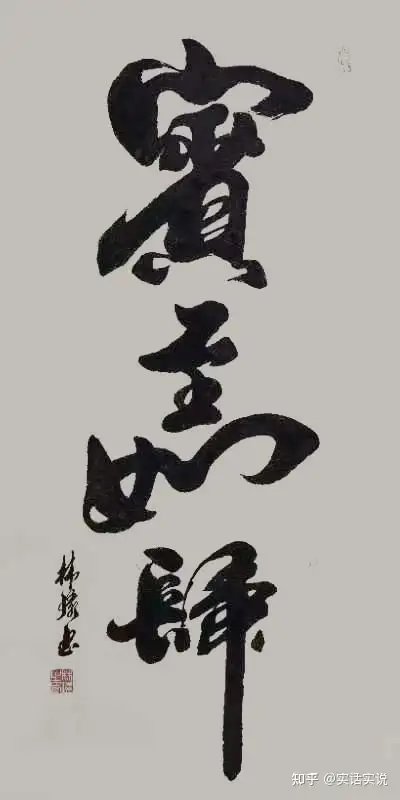 賓至如歸
林 书
知乎 @实话实说